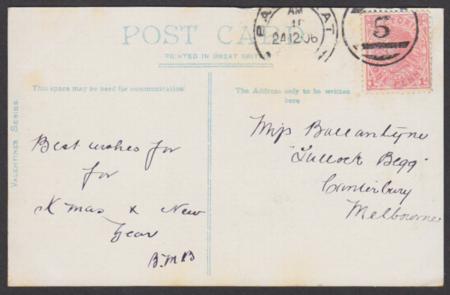 POST CARD
PRINTED IN GREAT BRITAIN
This space may be used for communication
The Address only to be written
here
VALENTINES SERIES
BA AT
AM
24 12 06
5
Best wishes for
for
Xmas & New
Year
B.M.B
Miss Ballantyne
"Tullock Begg"
Canterbury
Melbourne